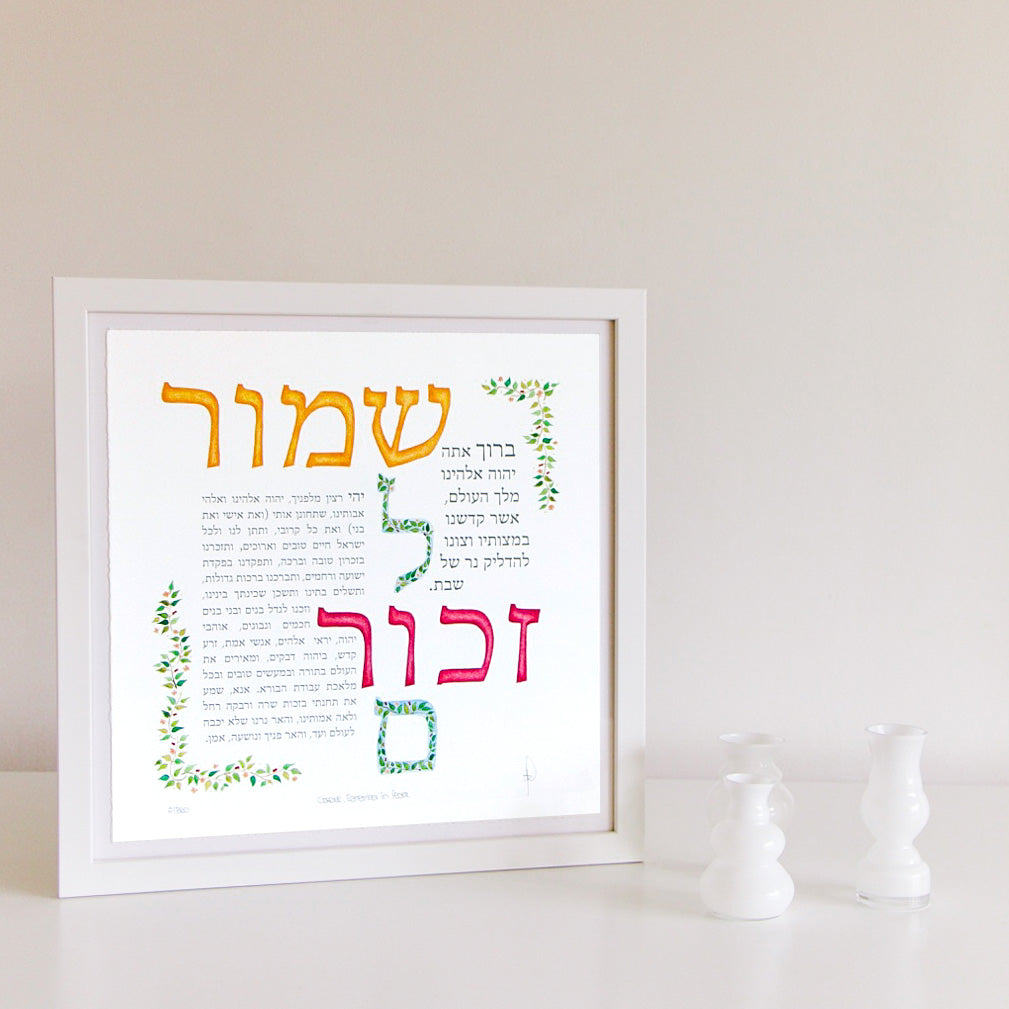 שמור
ברוך אתה
יהוה אלהינו
מלך העולם,
אשר קדשנו
במצותיו וצונו
להדליק נר של
שבת.
ל
יהי רצון מלפניך, יהוה אלהינו ואלהי
אבותינו, שתחונן אותי (ואת אישי ואת
בני) ואת כל קרובי, ותתן לנו ולכל
ישראל חיים טובים וארוכים, ותזכרנו
בזכרון טובה וברכה, ותפקדנו בפקדת
ישועה ורחמים, ותברכנו ברכות גדולות,
ותשלים בתינו ותשכן שכינתך בינינו,
וזכנו לגדל בנים ובני בנים
חכמים ונבונים, אוהבי
יהוה, יראי אלהים, אנשי אמת, זרע
קדש, ביהוה דבקים, ומאירים את
העולם בתורה ובמעשים טובים ובכל
מלאכת עבודת הבורא. אנא, שמע
את תחנתי בזכות שרה ורבקה רחל
ולאה אמותינו, והאר נרנו שלא יכבה
לעולם ועד, והאר פניך ונושעה, אמן.
זכור
ם
Remember in Peace